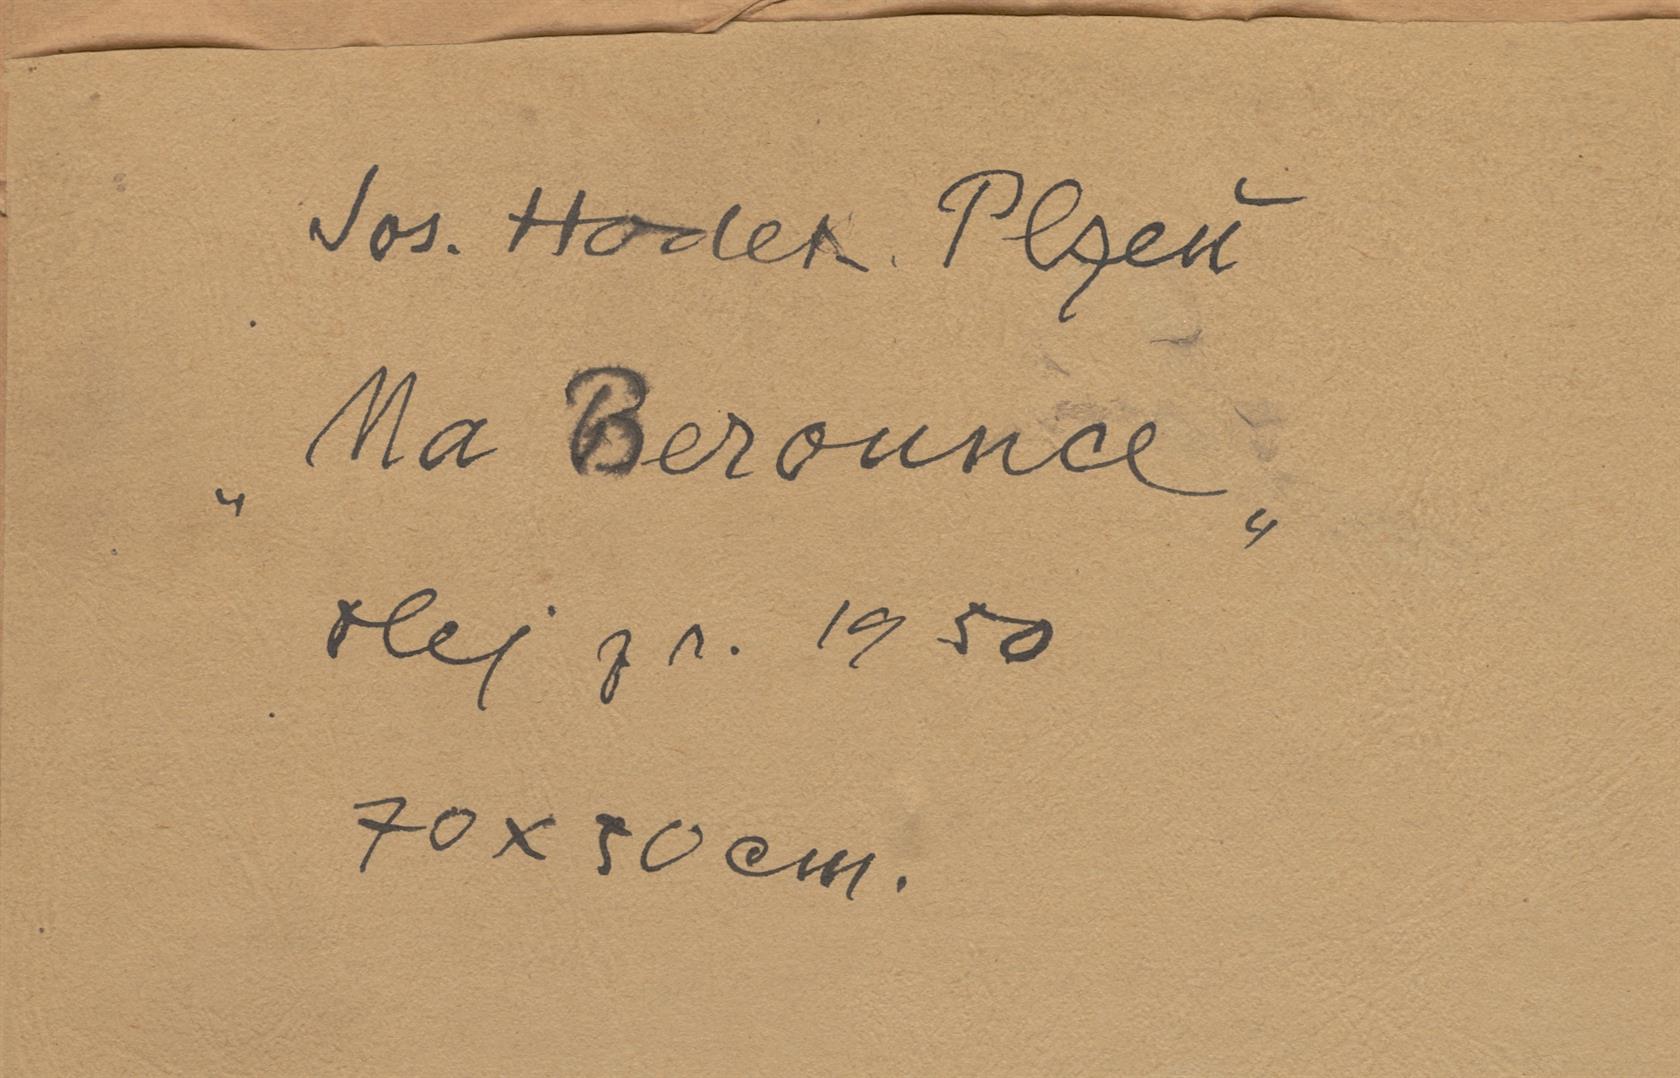 Jos. Hodek. Plzeň
„Na Berounce„
olej z r. 1950
70x50cm.